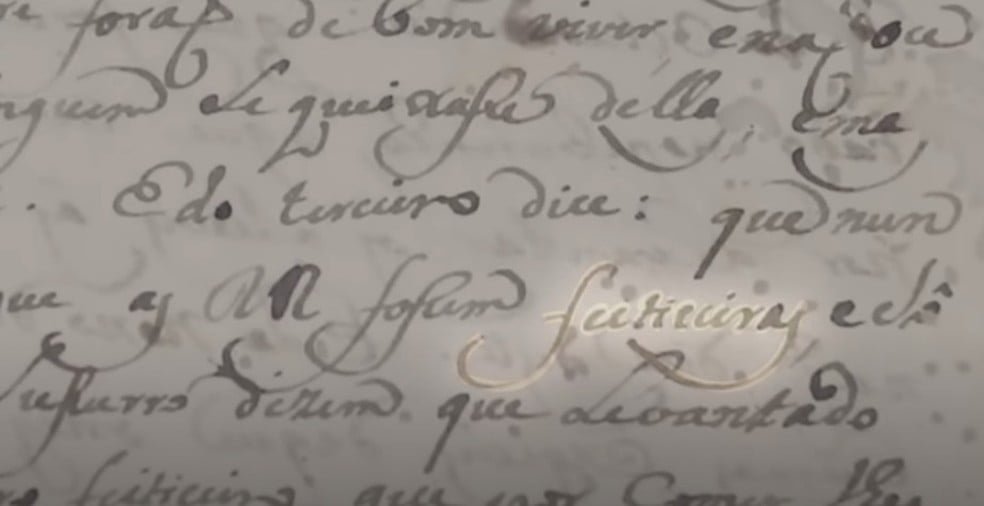 foraõ de bom viver, e na
nguem se queixase della, e na
. E do terceiro dice: que nun
que as RR fosem feiticeiras e
susurro dizem que Levantado
feiticeiro que por